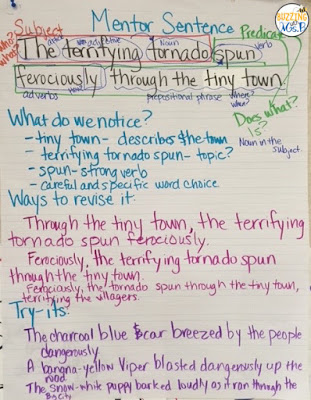 BUZZING WITH MS. B
Mentor Sentence
Subject
Predicate
who?
what?
article
adjective
Noun
verb
The terrifying tornado spun
ferociously through the tiny town.
adverbs
how?
prepositional phrase
where?
when?
Does what?
Is?
Noun in the
subject
What do we notice?
- tiny town - describes the town
- terrifying tornado spun - topic?
- spun - strong verb
- careful and specific word choice
Ways to revise it:
Through the tiny town, the terrifying
tornado spun ferociously.
Ferociously, the terrifying tornado spun
through the tiny town.
Ferociously, the tornado spun through the tiny town,
terrifying the villagers.
Try-its:
The charcoal blue car breezed by the people
dangerously.
A banana-yellow Viper blasted dangerously up the
road.
The snow-white puppy barked loudly as it ran through the
Big City.